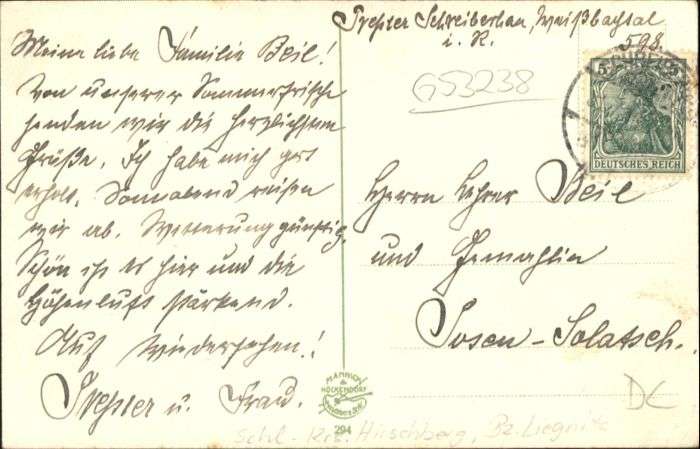 Preßler Schreiberhau, Weißbachtal
i. R. 598.
Meine liebe Familie Beil!
Von unserer Sommerfrische
senden wir die herzlichsten
Grüße. Ich habe mich gut
erholt. Sonnabend reisen
wir ab. Witterung günstig.
Schön ist es hier und die
Höhenluft stärkend.
Auf Wiedersehen!
Preßler u. Frau.
G53238
5 5
DEUTSCHES REICH
Herrn Lehrer Beil
und Gemahlin
Posen-Solatsch.
MANNICH
&
HÖCKENDORF
294
DC
Schl - Krs. Hirschberg, Bz. Liegnitz